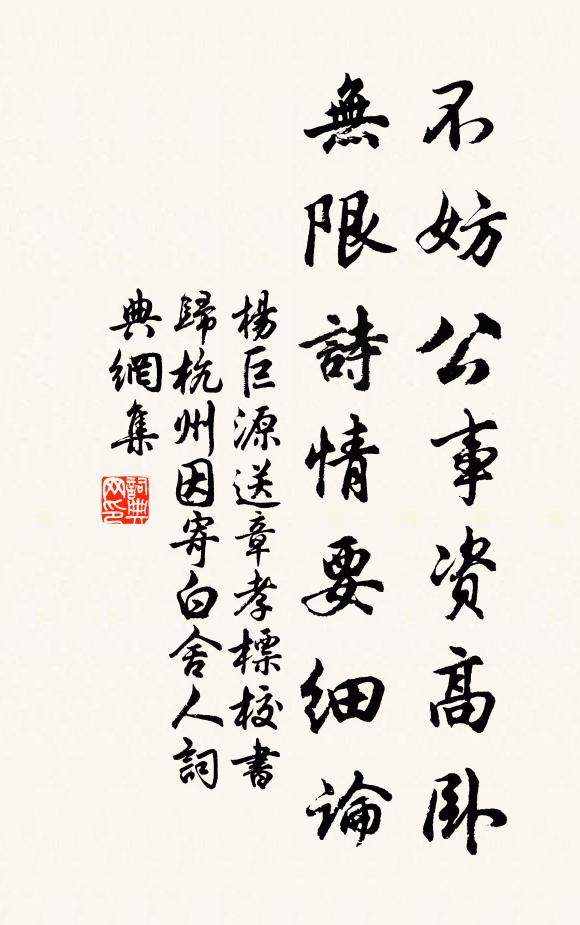 不妨公事資高臥
無限詩情要細論
楊巨源送章孝標校書
歸杭州因寄白舍人詞
典網集
詞典
网印